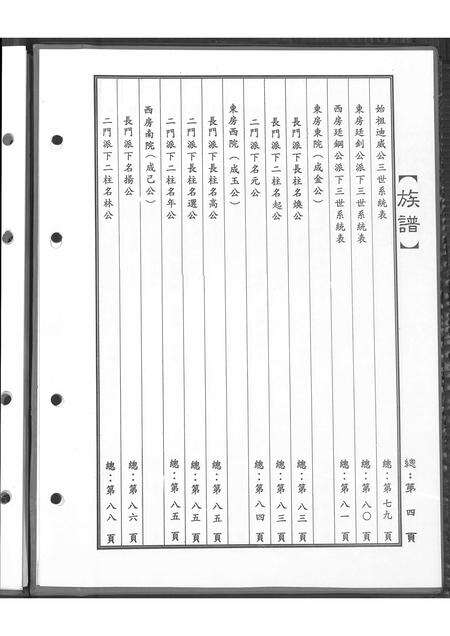 【族譜】
總：第 四 頁
始祖迪威公三世系統表 總：第 七九 頁
東房廷釗公派下三世系統表 總：第 八〇 頁
西房廷鋼公派下三世系統表 總：第 八一 頁
東房東院（成金公）
長門派下長柱名煥公 總：第 八三 頁
長門派下二柱名起公 總：第 八三 頁
二門派下名元公 總：第 八四 頁
東房西院（成玉公）
長門派下長柱名高公 總：第 八五 頁
二門派下長柱名選公 總：第 八五 頁
二門派下二柱名年公 總：第 八五 頁
西房南院（成己公）
長門派下名揚公 總：第 八六 頁
二門派下二柱名林公 總：第 八八 頁